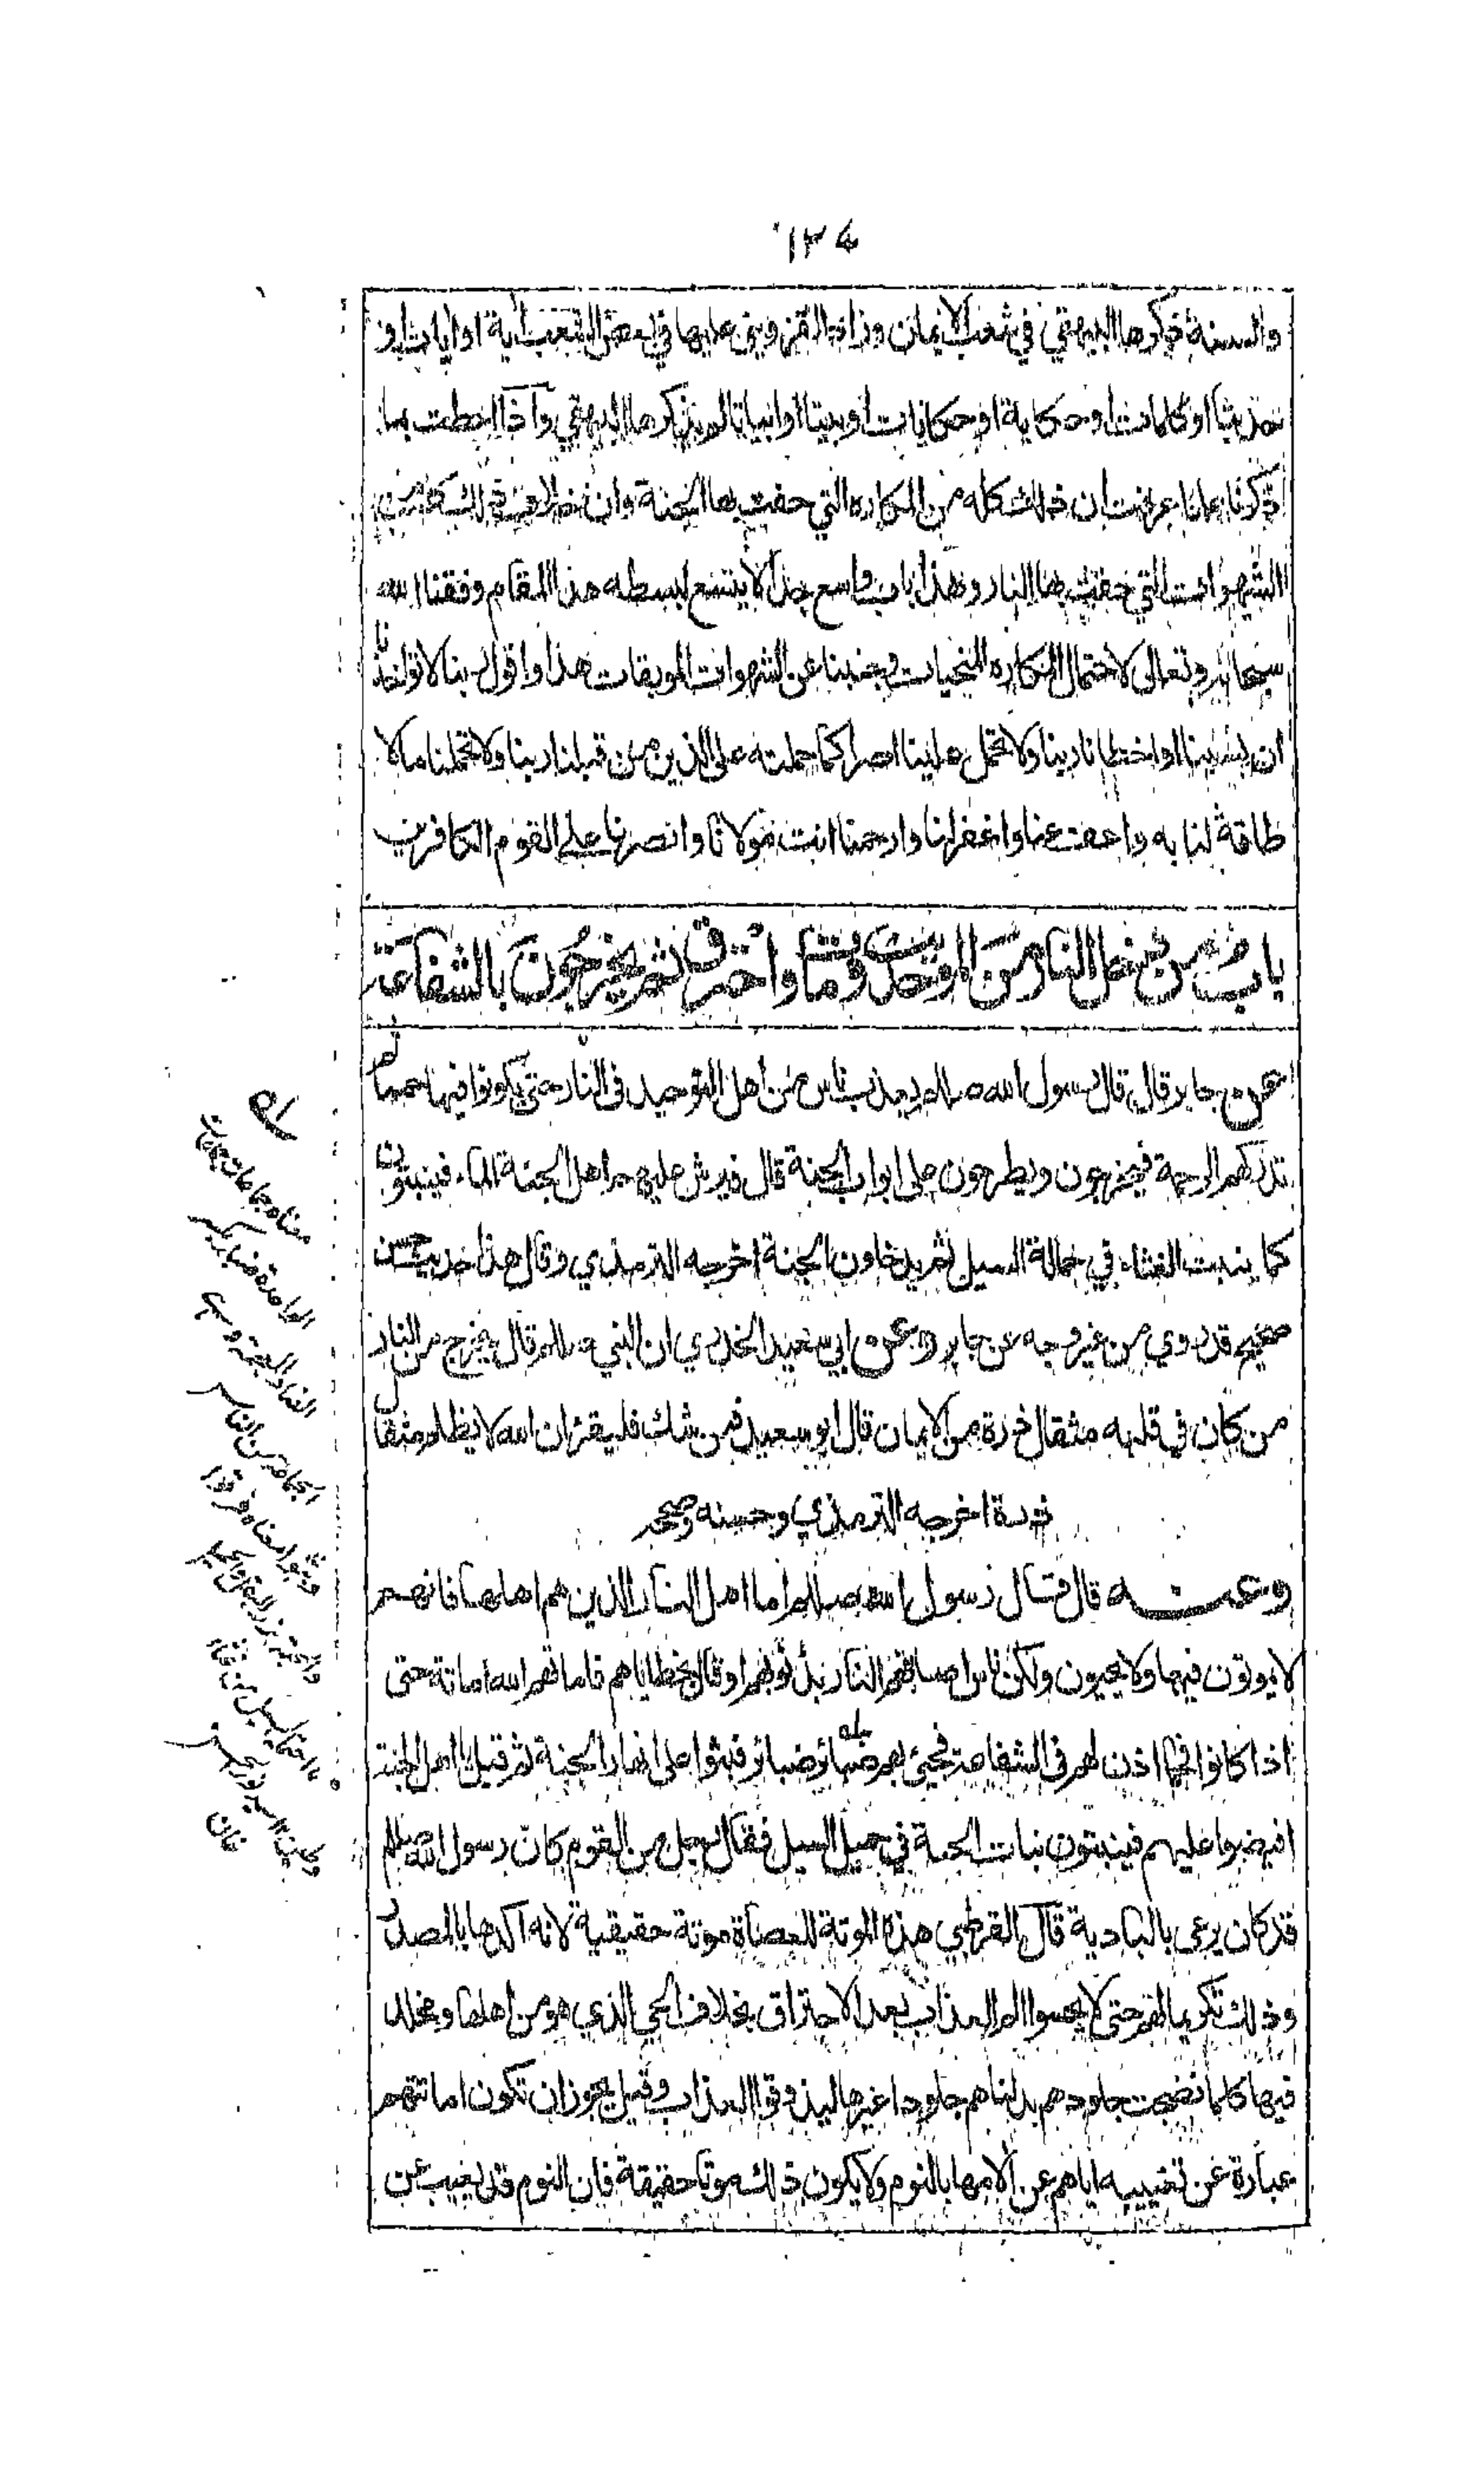 ١٣٤
والسنة ذكرها البيهقي في شعب الايمان وزاد القزويني عليها في بعض الشعب آية او ايات او
حديثا او كلمات او حكاية او حكايات او بيتا او ابياتا لم يذكرها البيهقي واذا احطت بما
ذكرنا علما عرفت ان ذلك كله من المكاره التي حفت بها الجنة وان ذلك من
الشهوات التي حفت بها النار وهذا باب واسع جدا لا يتسع لبسطه هذا المقام وفقنا الله
سبحانه وتعالى لاحتمال المكاره المنجيات وجنبنا عن الشهوات الموبقات هذا واقول ربنا لا تؤاخذنا
ان نسينا او اخطانا ربنا ولا تحمل علينا اصرا كما حملته على الذين من قبلنا ربنا ولا تحملنا ما لا
طاقة لنا به واعف عنا واغفر لنا وارحمنا انت مولانا وانصرنا على القوم الكافرين
باب من يدخل النار من الموحدين ومات واحترق ثم يخرجون بالشفاعة
عن جابر قال قال رسول الله صللم يعذب ناس من اهل التوحيد في النار حتى يكونوا فيها حمما ثم
تدركهم الرحمة فيخرجون ويطرحون على ابواب الجنة قال فيرش عليهم اهل الجنة الماء فينبتون
كما ينبت الغثاء في حمالة السيل ثم يدخلون الجنة اخرجه الترمذي وقال هذا حديث حسن
صحيح قد روي من غير وجه عن جابر وعن ابي سعيد الخدري ان النبي صللم قال يخرج من النار
من كان في قلبه مثقال ذرة من الايمان قال ابو سعيد فمن شك فليقرأ ان الله لا يظلم مثقال
ذرة اخرجه الترمذي وحسنه وصححه
وعنه قال قال رسول الله صللم اما اهل النار الذين هم اهلها فانهم
لا يموتون فيها ولا يحيون ولكن ناس اصابتهم النار بذنوبهم او قال بخطاياهم فاماتهم الله اماتة حتى
اذا كانوا فحما اذن لهم في الشفاعة فجيء بهم ضبائر ضبائر فبثوا على انهار الجنة ثم قيل يا اهل الجنة
افيضوا عليهم فينبتون نبات الحبة في حميل السيل فقال رجل من القوم كان رسول الله صللم
قد كان يرعى بالبادية قال القرطبي هذه الموتة للعصاة موتة حقيقية لانه اكدها بالمصدر
وذلك تكريما لهم حتى لا يحسوا الم العذاب بعد الاحتراق بخلاف الحي الذي هو من اهلها ومخلد
فيها كلما نضجت جلودهم بدلناهم جلودا غيرها ليذوقوا العذاب وقيل يجوز ان تكون اماتتهم
عبارة عن تغييبه اياهم عن آلامها بالنوم ولا يكون ذلك موتا حقيقة فان النوم قد يغيب عن
معناه جماعات
الواحدة ضبارة
الجماعة من الناس